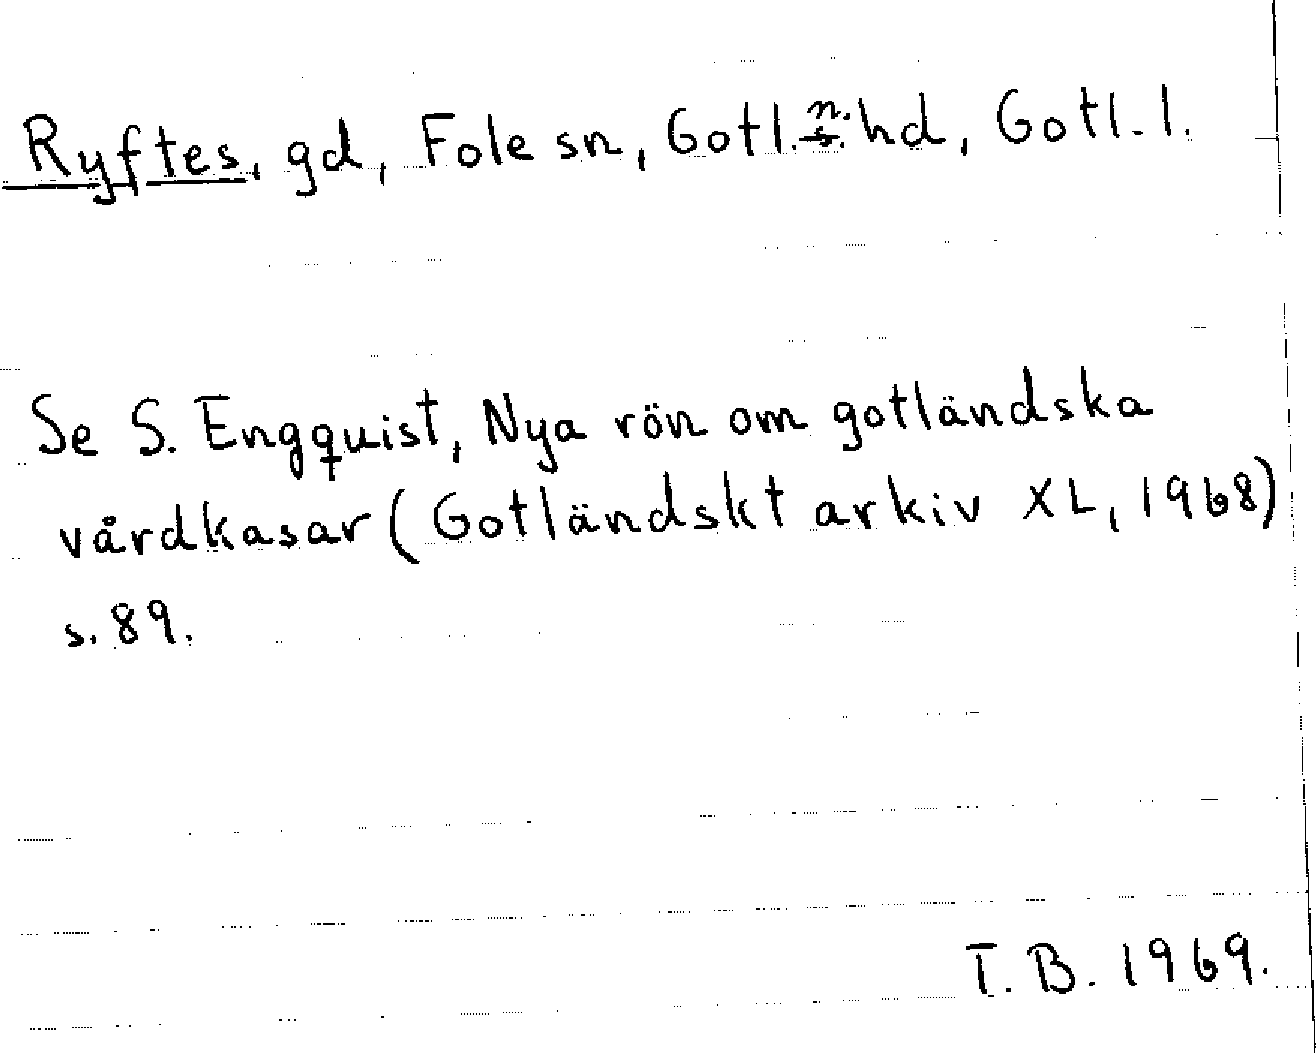 Ryftes, gd, Fole sn, Gotl. n. hd, Gotl. l.
Se S. Engquist, Nya rön om gotländska
vårdkasar (Gotländskt arkiv XL, 1968)
s. 89.
T. B. 1969.